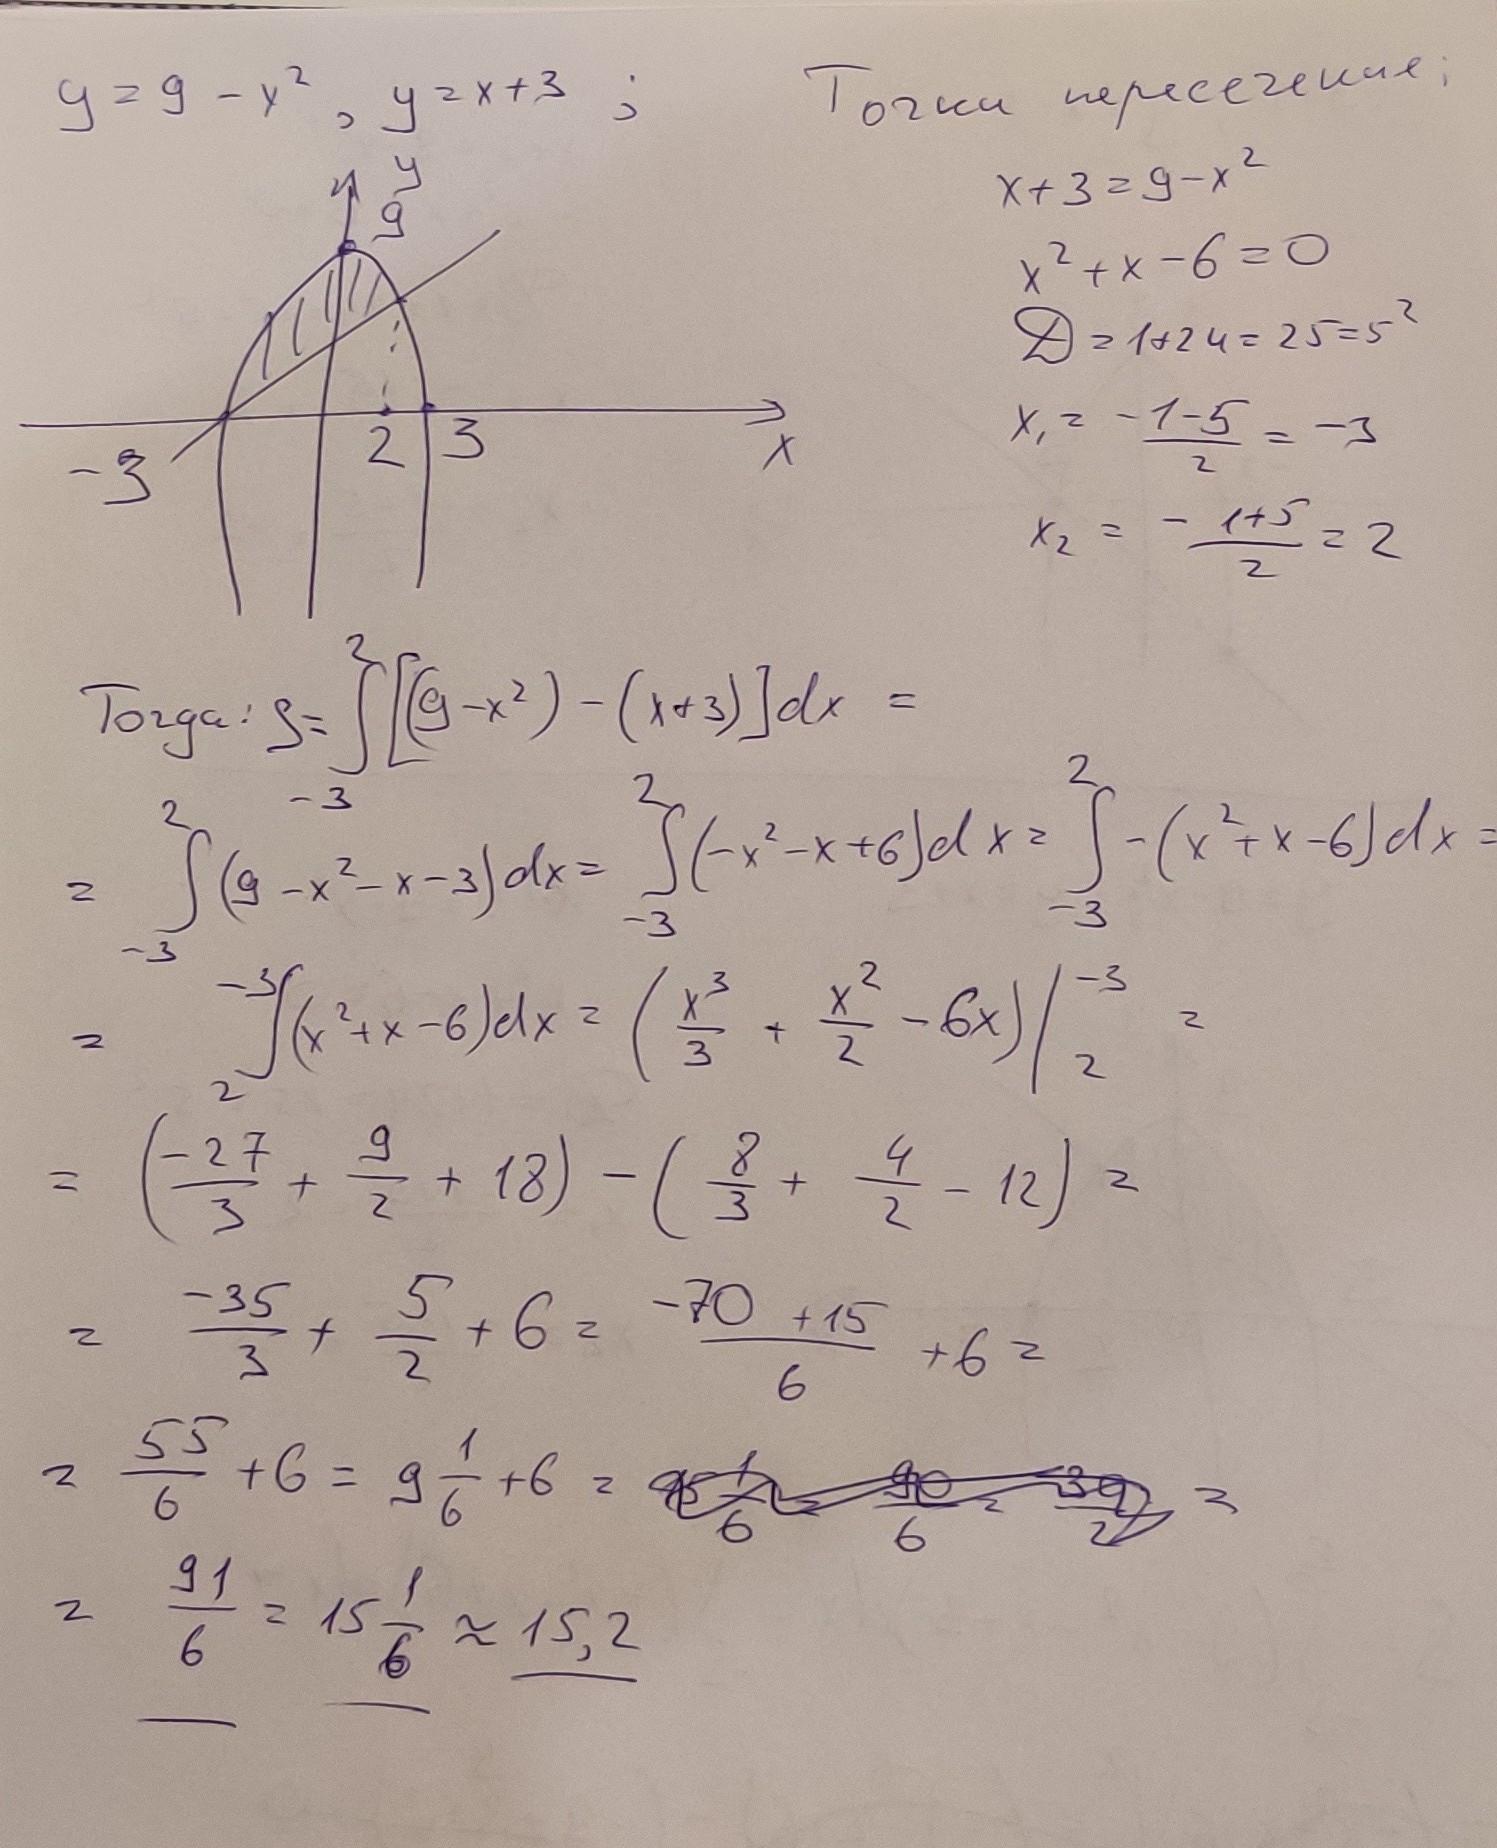 y = 9 - x², y = x + 3 ;
Точки пересечения:
x + 3 = 9 - x²
x² + x - 6 = 0
D = 1 + 24 = 25 = 5²
x₁ = (-1-5)/2 = -3
x₂ = -(1+5)/2 = 2
y
9
-3
2
3
x
Тогда: S = ∫_{-3}^{2} [(9 - x²) - (x + 3)] dx =
= ∫_{-3}^{2} (9 - x² - x - 3) dx = ∫_{-3}^{2} (-x² - x + 6) dx = ∫_{-3}^{2} -(x² + x - 6) dx =
= ∫_{2}^{-3} (x² + x - 6) dx = (x³/3 + x²/2 - 6x) |_{2}^{-3} =
= (-27/3 + 9/2 + 18) - (8/3 + 4/2 - 12) =
= -35/3 + 5/2 + 6 = (-70 + 15)/6 + 6 =
= 55/6 + 6 = 9 1/6 + 6 = =
= 91/6 = 15 1/6 ≈ 15,2